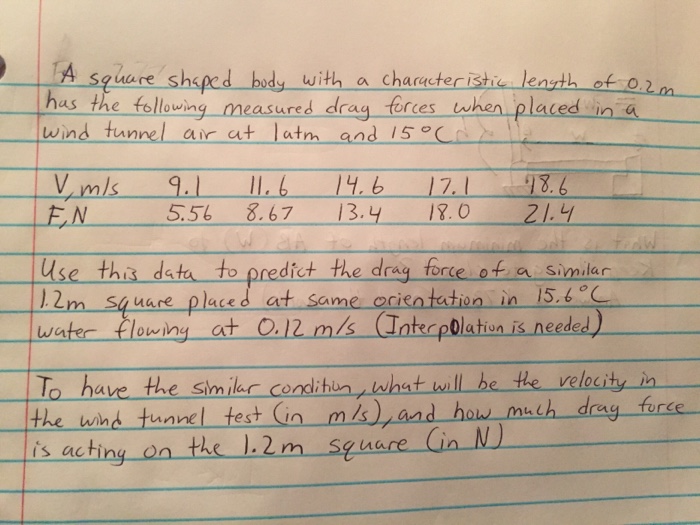 A square shaped body with a characteristic length of 0.2m
has the following measured drag forces when placed in a
wind tunnel air at 1atm and 15°C
V, m/s 9.1 11.6 14.6 17.1 18.6
F, N 5.56 8.67 13.4 18.0 21.4
Use this data to predict the drag force of a similar
1.2m square placed at same orientation in 15.6°C
water flowing at 0.12 m/s (Interpolation is needed)
To have the similar condition, what will be the velocity in
the wind tunnel test (in m/s), and how much drag force
is acting on the 1.2m square (in N)